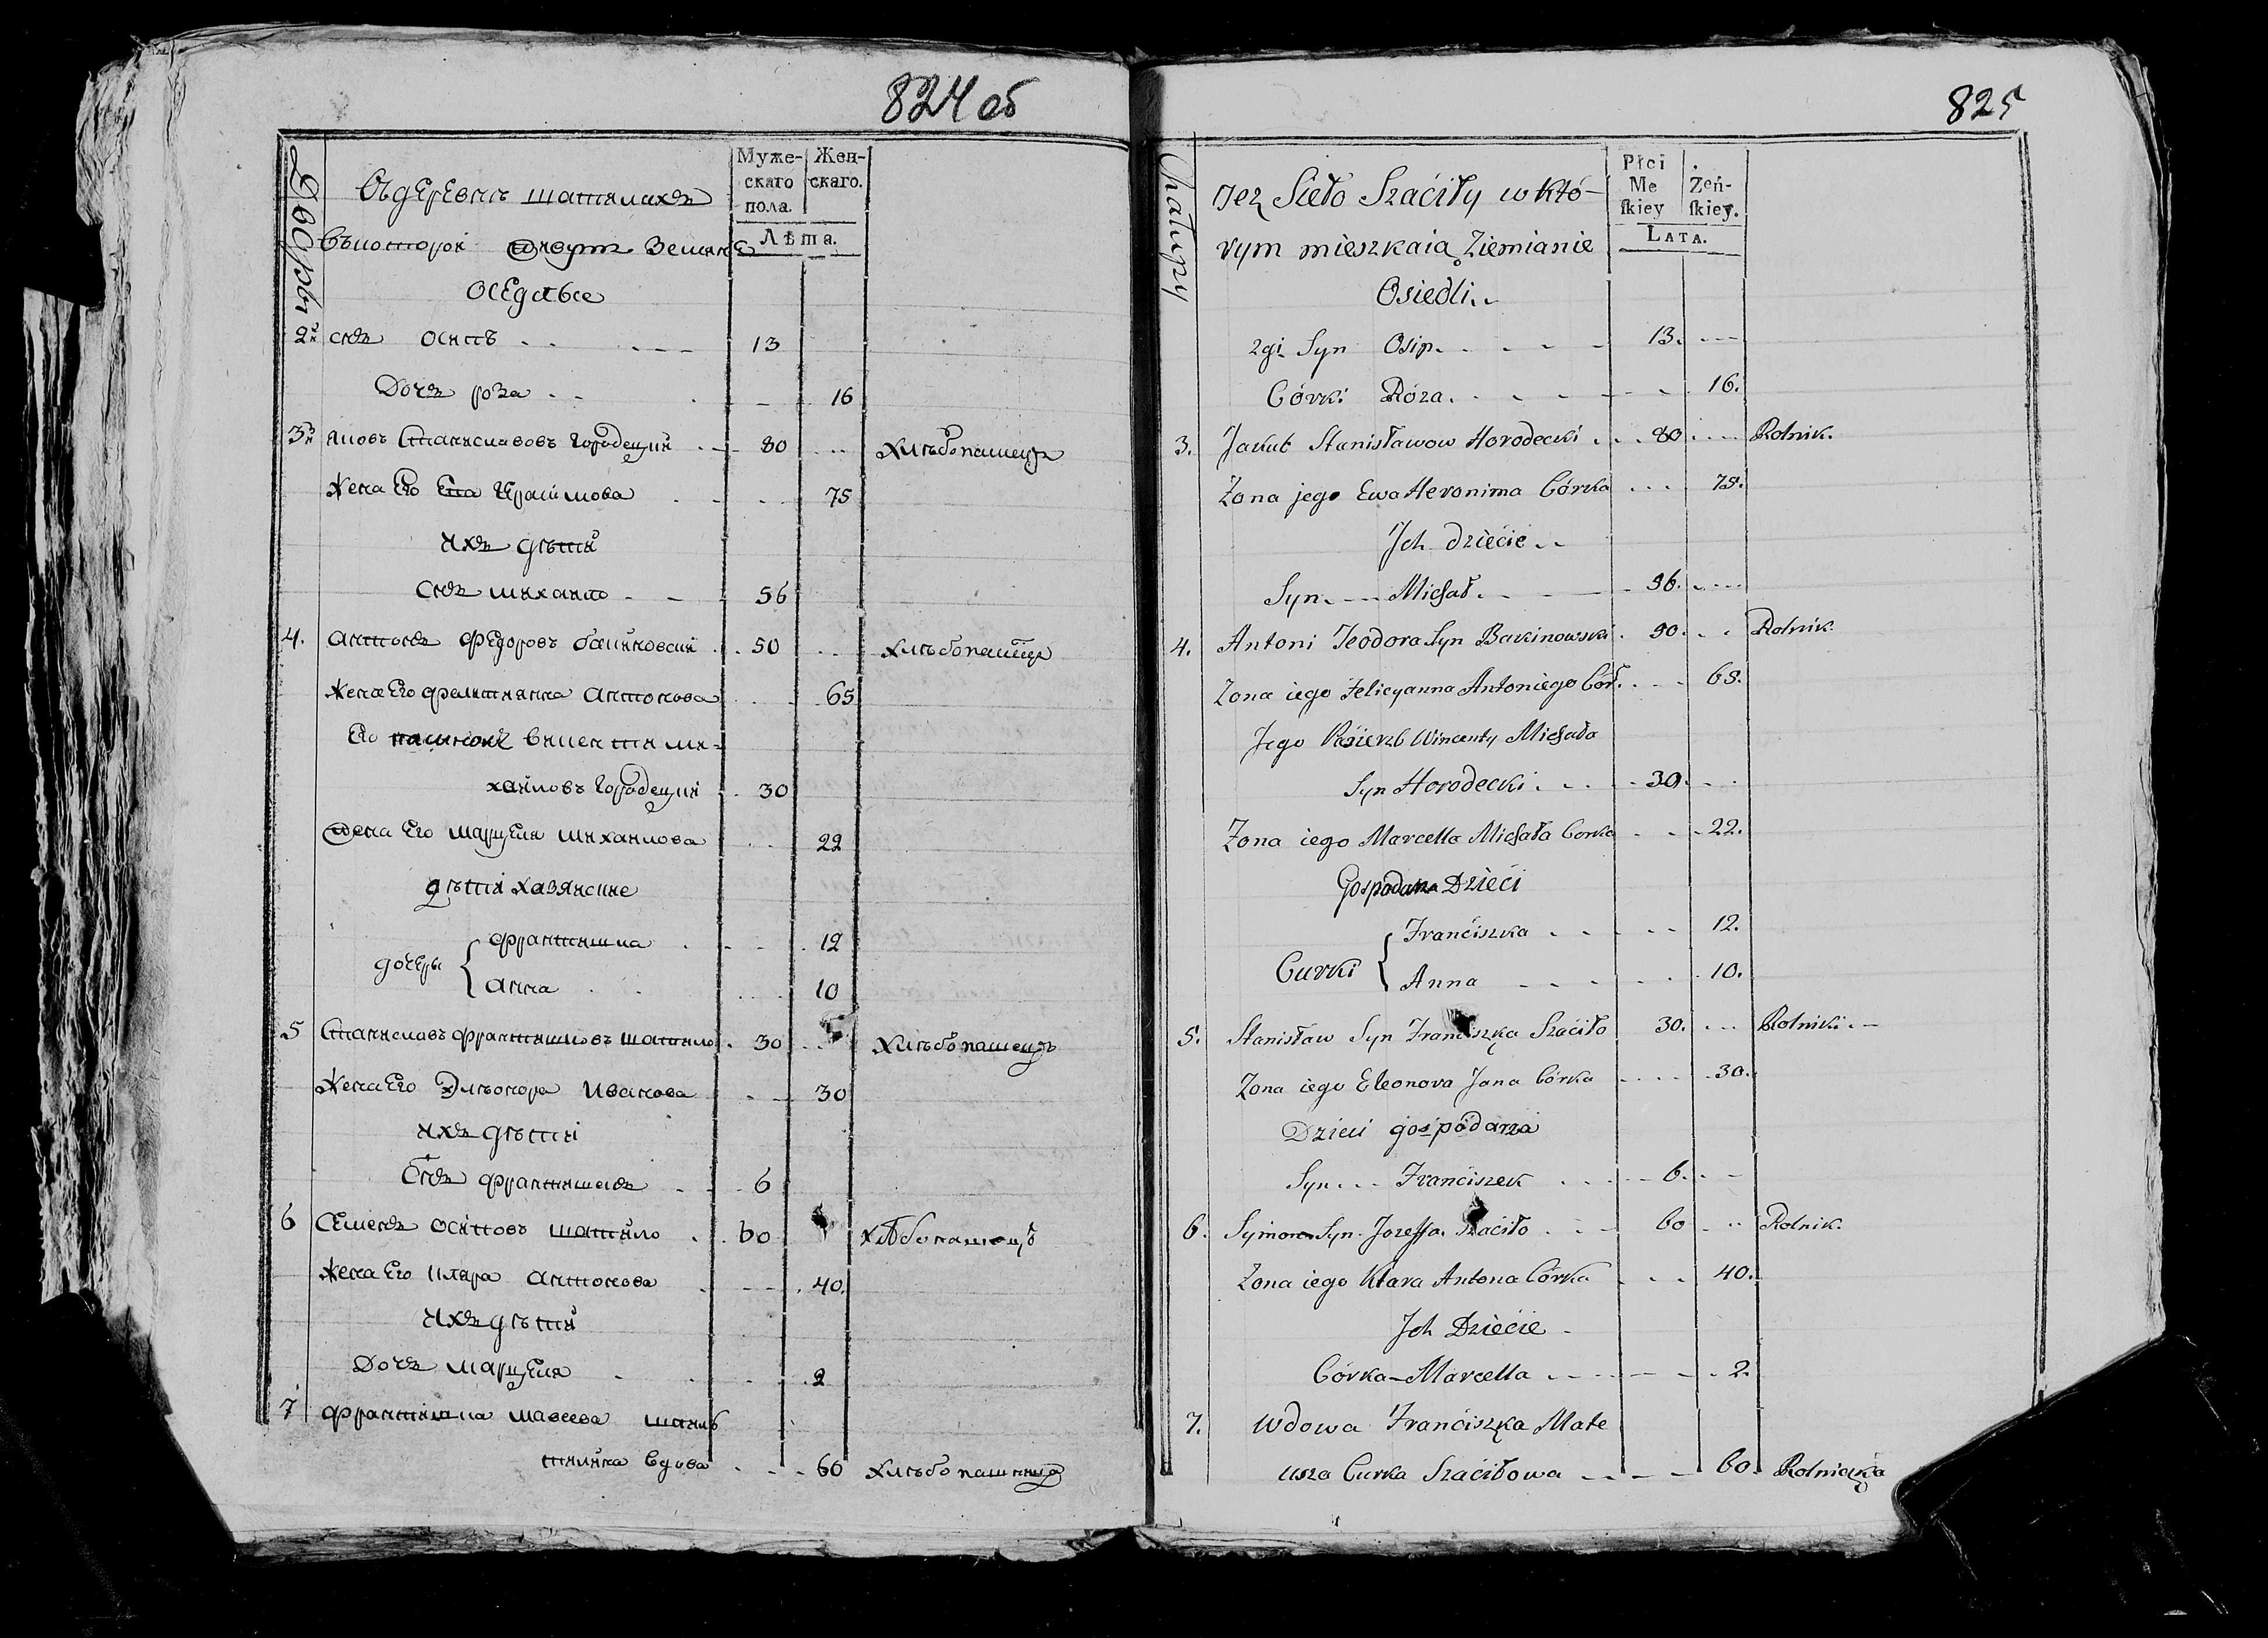 824 об
Дворы
Муже-
скаго
пола.
Жен-
скаго.
Лѣта.
Въдеревнѣ шатилахъ
въкоторой живутъ Земяне
оседлые
2й снъ осипъ 13
Дочъ роза 16
3й яковъ Станиславовъ городецкий 80 хлѣбопашецъ
жена Его Ева Ерасимова 75
ихъ дѣти
снъ михаило 56
4. антонъ федоровъ бакиновский 50 хлѣбопашецъ
жена Его фелитиянна антонова 65
Его пасинокъ викентий ми-
хайловъ городецкий 30
жена Его марцеля михаилова 22
дѣти хазянские
дочеры франтишка 12
анна 10
5 Станиславъ франтишковъ шатило 30 хлѣбопашецъ
жена Его Элѣонора Иванова 30
ихъ дѣти
Снъ франтишекъ 6
6 Семенъ осиповъ шатило 60 хлѣбопашецъ
жена Его клара антонова 40.
ихъ дѣти
Дочъ марцеля 2
7 франтишка мавеева
вдова 60 хлѣбопашница
825
Chałupy
Płci
Me
ſkiey
Zeń-
ſkiey.
LATA.
Jez Sieło Szaciły w któ-
rym mieszkaią Ziemianie
Osiedli.
2gi Syn Osip 13.
Córki Róza 16.
3. Jakub Stanisławow Horodecki 80 Rolnik.
Zona jego Ewa Heronima Córka 75.
Jch dziećie
Syn Michał 56.
4. Antoni Teodora Syn Bakinowski 50. Rolnik.
Zona iego Felicyanna Antoniego Cór. 65.
Jego Pasierzb Wincenty Michała
Syn Horodecki 30.
Zona iego Marcella Michała Corka 22.
Gospodarza Dzieci
Curki Franciszka 12.
Anna 10.
5. Stanisław Syn Franciszka Szaciło 30. Rolniki
Zona iego Eleonora Jana Córka 30.
Dzieci gospodarza
Syn Franciszek 6.
6. Symon Syn Jozeffa Szaciło 60 Rolnik.
Zona iego Klara Antona Córka 40.
Jch Dziećie
Córka Marcella 2.
7. Wdowa Franciszka Mate
usza Curka Szaciłowa 60. Rolniczka